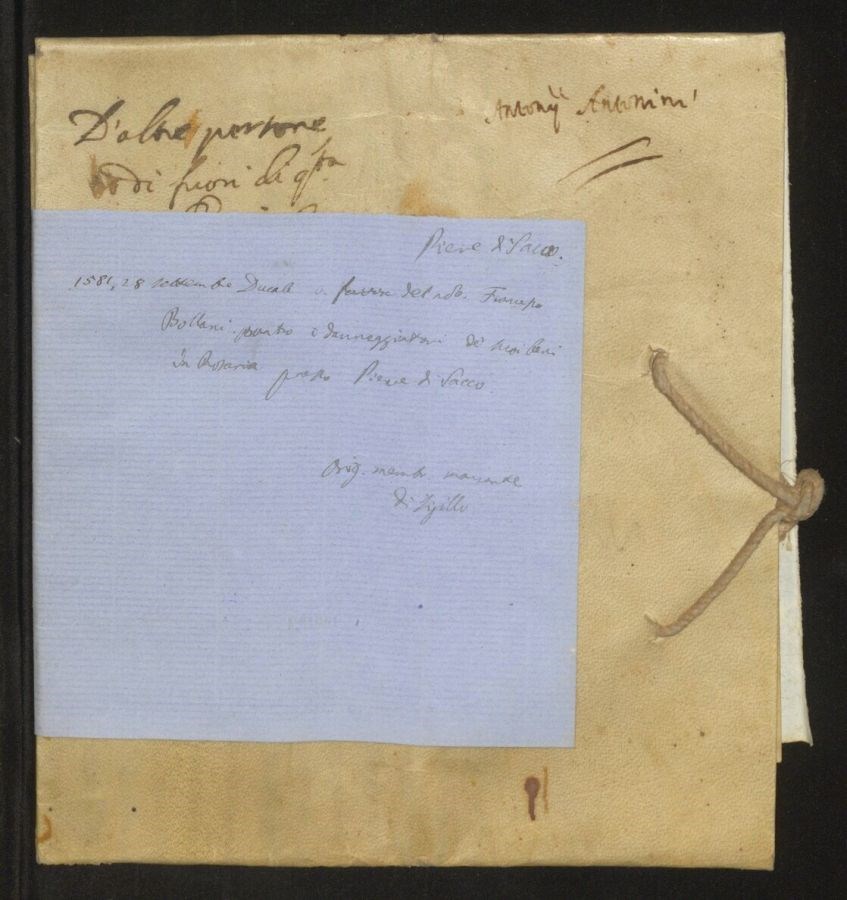 Antonij Antonini
D'altre persone
di fuori di q.sta
Pieve di Sacco.
1581, 28 settembre Ducale a favore del nob. Francesco
Bollani contro i danneggiatori de' suoi beni
in Rosaria presso Pieve di Sacco
Orig. membr. mancante
di sigillo